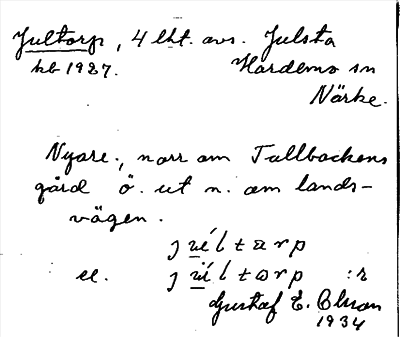 Jultorp, 4 lht. avs. Julsta
kb 1927. Hardemo sn
Närke.
Nyare., norr om Tallbackens
gård ö. ut n. om lands-
vägen.
el.
Gustaf E. Olsson
1934